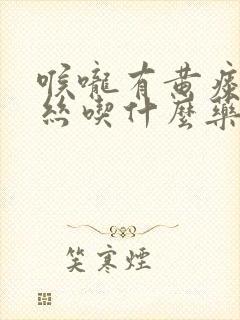 喉嚨有黄痰
絲喫什麼藥
笑寒煙